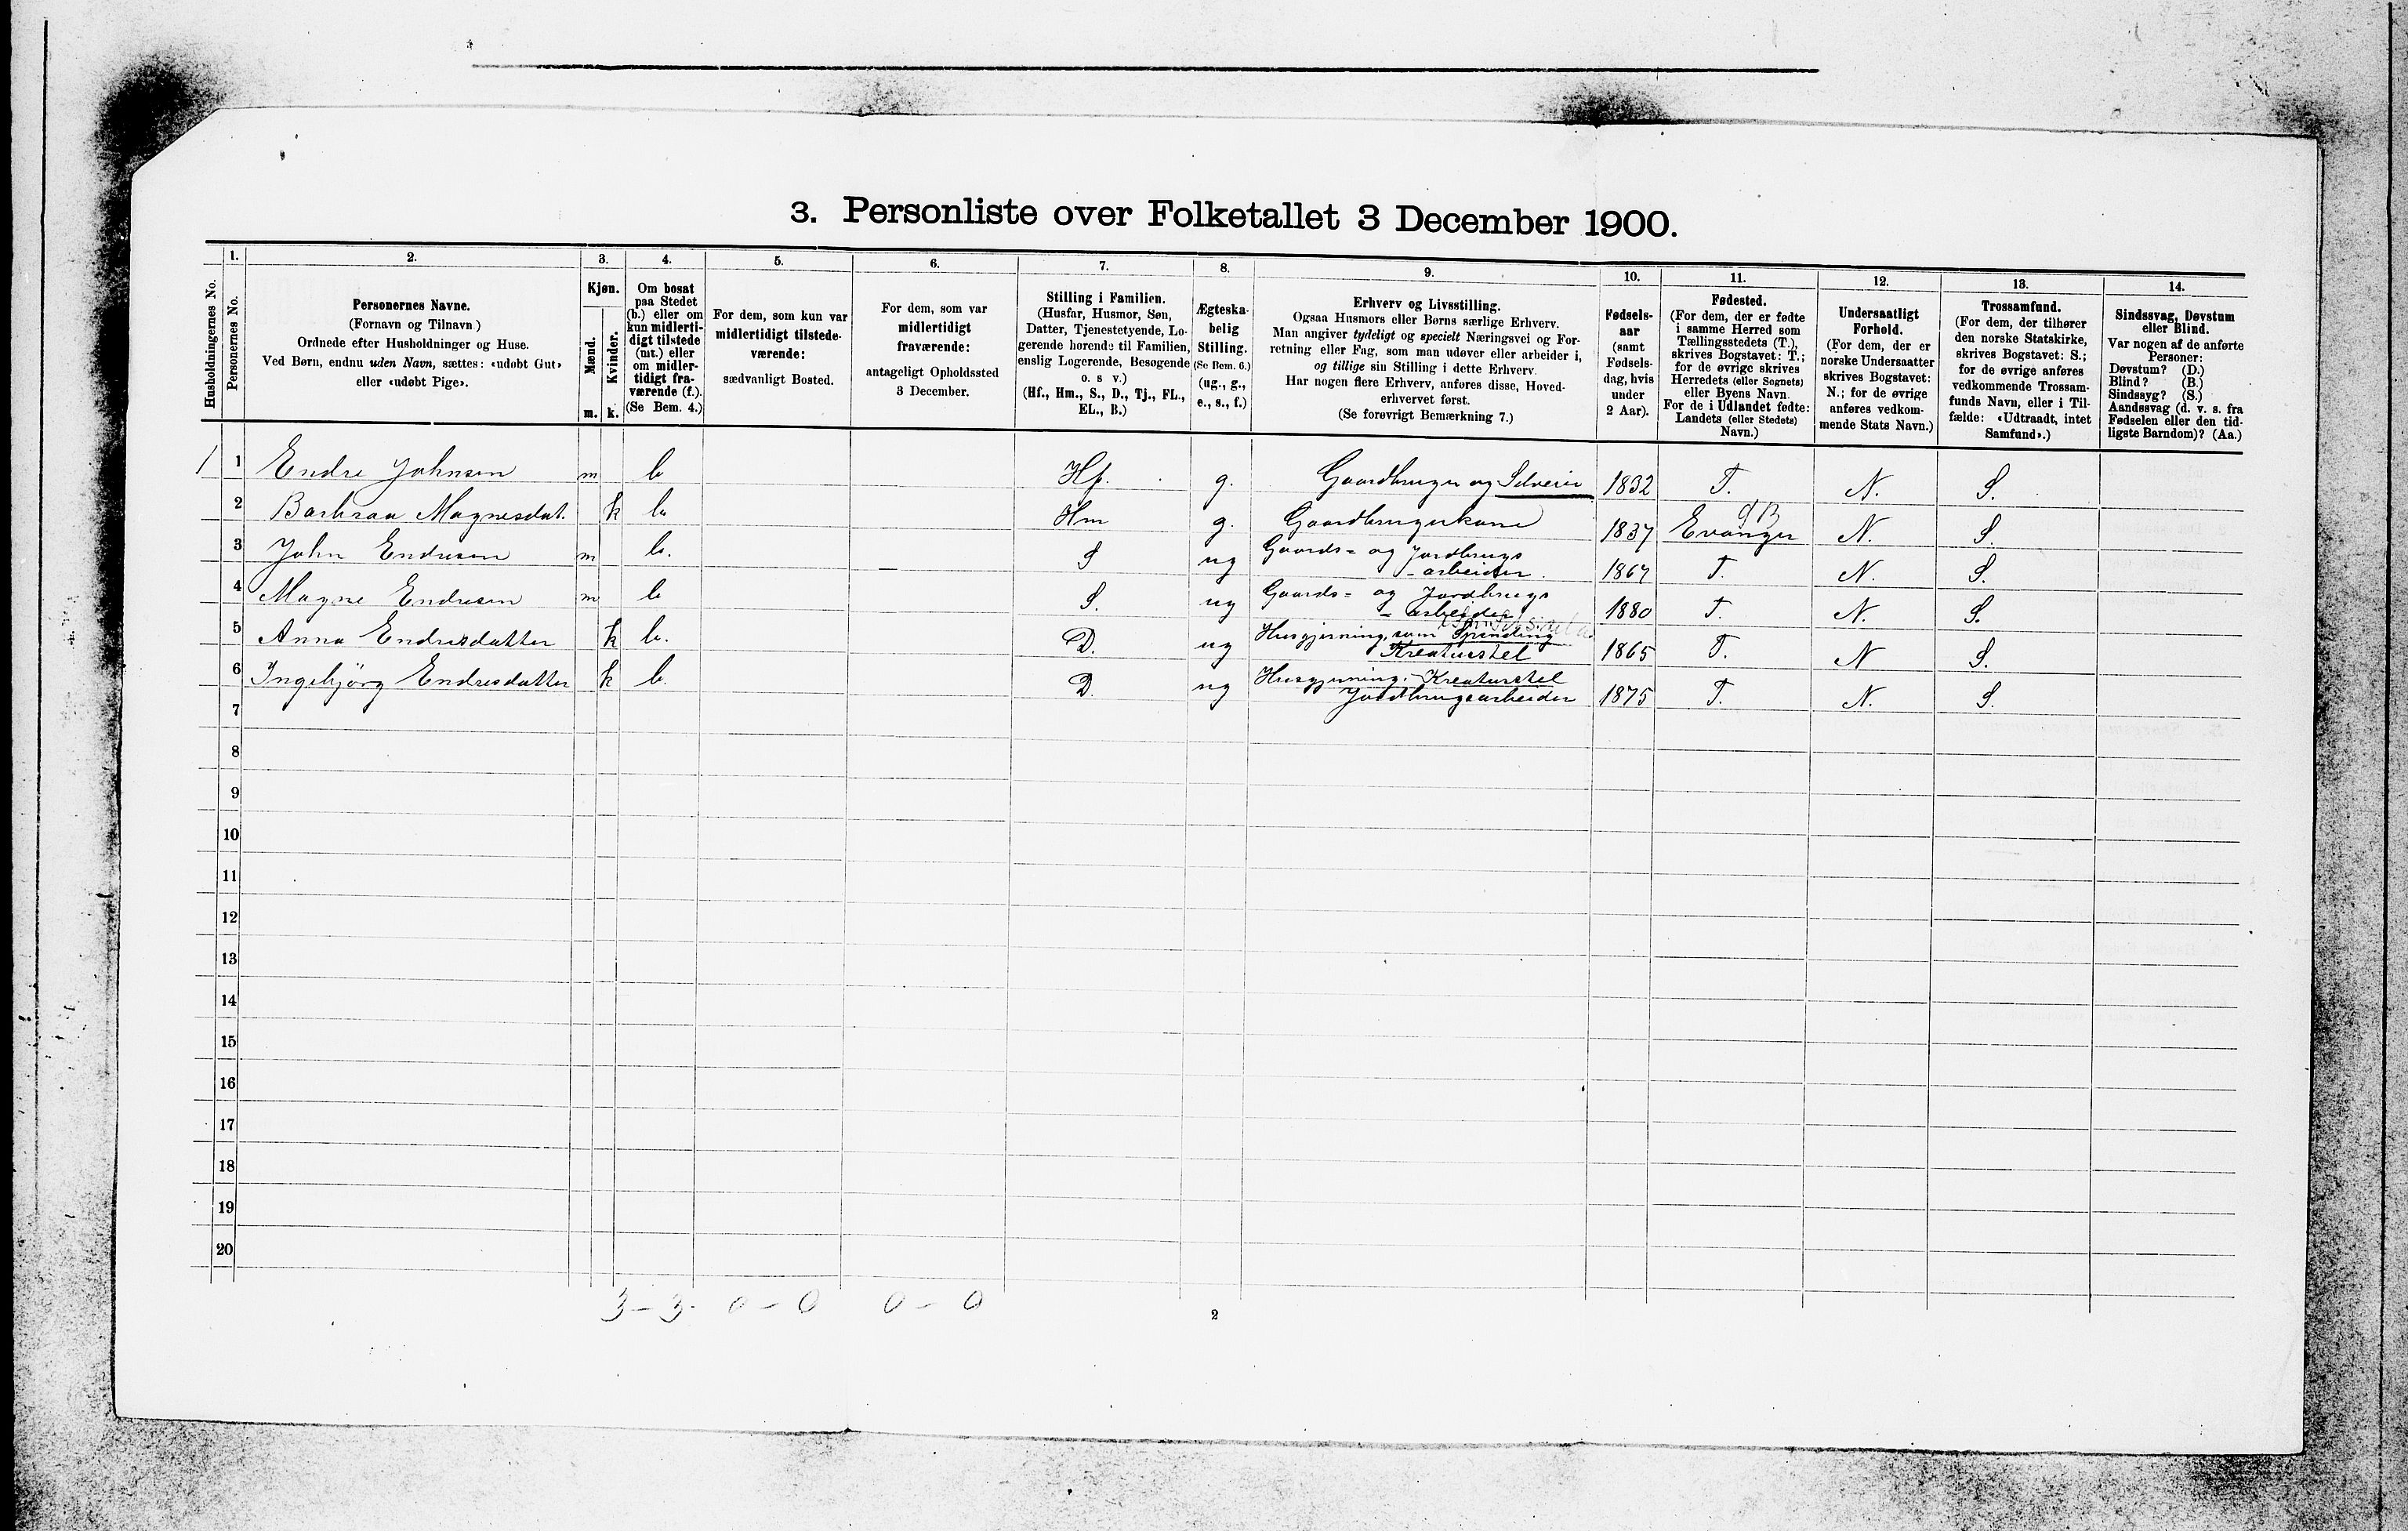 3. Personliste over Folketallet 3 December 1900.
1. 2. 3. 4. 5. 6. 7. 8. 9. 10. 11. 12. 13. 14.
Husholdningernes No.
Personernes No.
Personernes Navne.
(Fornavn og Tilnavn)
Ordnede efter Husholdninger og Huse.
Ved Børn, endnu uden Navn, sættes: «udøbt Gut»
eller «udøbt Pige».
Kjøn.
Mænd.
Kvinder.
m. k.
Om bosat
paa Stedet
(b.) eller om
kun midlerti-
digt tilstede
(mt.) eller
om midler-
tidigt fra-
værende (f.).
(Se Bem. 4.)
For dem, som kun var
midlertidigt tilstede-
værende:
sædvanligt Bosted.
For dem, som var
midlertidigt
fraværende:
antageligt Opholdssted
3 December.
Stilling i Familien.
(Husfar, Husmor, Søn,
Datter, Tjenestetyende, Lo-
gerende hørende til Familien,
enslig Logerende, Besøgende
o. s v.)
(Hf., Hm., S., D., Tj., FL.,
EL., B.)
Ægteska-
belig
Stilling.
(Se Bem. 6.)
(ug., g.,
e., s., f.)
Erhverv og Livsstilling.
Ogsaa Husmors eller Børns særlige Erhverv.
Man angiver tydeligt og specielt Næringsvei og For-
retning eller Fag, som man udøver eller arbeider i,
og tillige sin Stilling i dette Erhverv.
Har nogen flere Erhverv, anføres disse, Hoved-
erhvervet først.
(Se forøvrigt Bemærkning 7.)
Fødsels-
aar
(samt
Fødsels-
dag, hvis
under
2 Aar).
Fødested.
(For dem, der er fødte
i samme Herred som
Tællingsstedets (T.),
skrives Bogstavet: T.;
for de øvrige skrives
Herredets (eller Sognets)
eller Byens Navn.
For de i Udlandet fødte:
Landets (eller Stedets)
Navn.)
Undersaatligt
Forhold.
(For dem, der er
norske Undersaatter
skrives Bogstavet:
N.; for de øvrige
anføres vedkom-
mende Stats Navn.)
Trossamfund.
(For dem, der tilhører
den norske Statskirke,
skrives Bogstavet: S.;
for de øvrige anføres
vedkommende Trossam-
funds Navn, eller i Til-
fælde: «Udtraadt, intet
Samfund».)
Sindssvag, Døvstum
eller Blind.
Var nogen af de anførte
Personer:
Døvstum? (D.)
Blind? (B.)
Sindssyg? (S.)
Aandssvag (d. v. s. fra
Fødselen eller den tid-
ligste Barndom)? (Aa.)
1 1 Endre Johnsen m b Hf. g. Gaardbruger og Selveier 1832 T. N. S.
2 Barbraa Magnesdat. k b Hm g. Gaardbrugerkone 1837 Evanger N. S.
3 John Endresen m b. S ug Gaards= og Jordbrugs
-arbeider. 1867 T. N. S.
4 Magne Endresen m b S. ug Gaards= og Jordbrugs
-arbeider 1880 T. N. S.
5 Anna Endresdatter k b. D. ug Husgjerning, som Spinding
Kreaturstel 1865 T. N S.
6 Ingebjörg Endresdatter k b. D. ug Husgjerning, Kreaturstel
Jordbrugsarbeider 1875 T. N. S.
7
8
9
10
11
12
13
14
15
16
17
18
19
20
3 - 3. 0 - 0 0 - 0
2